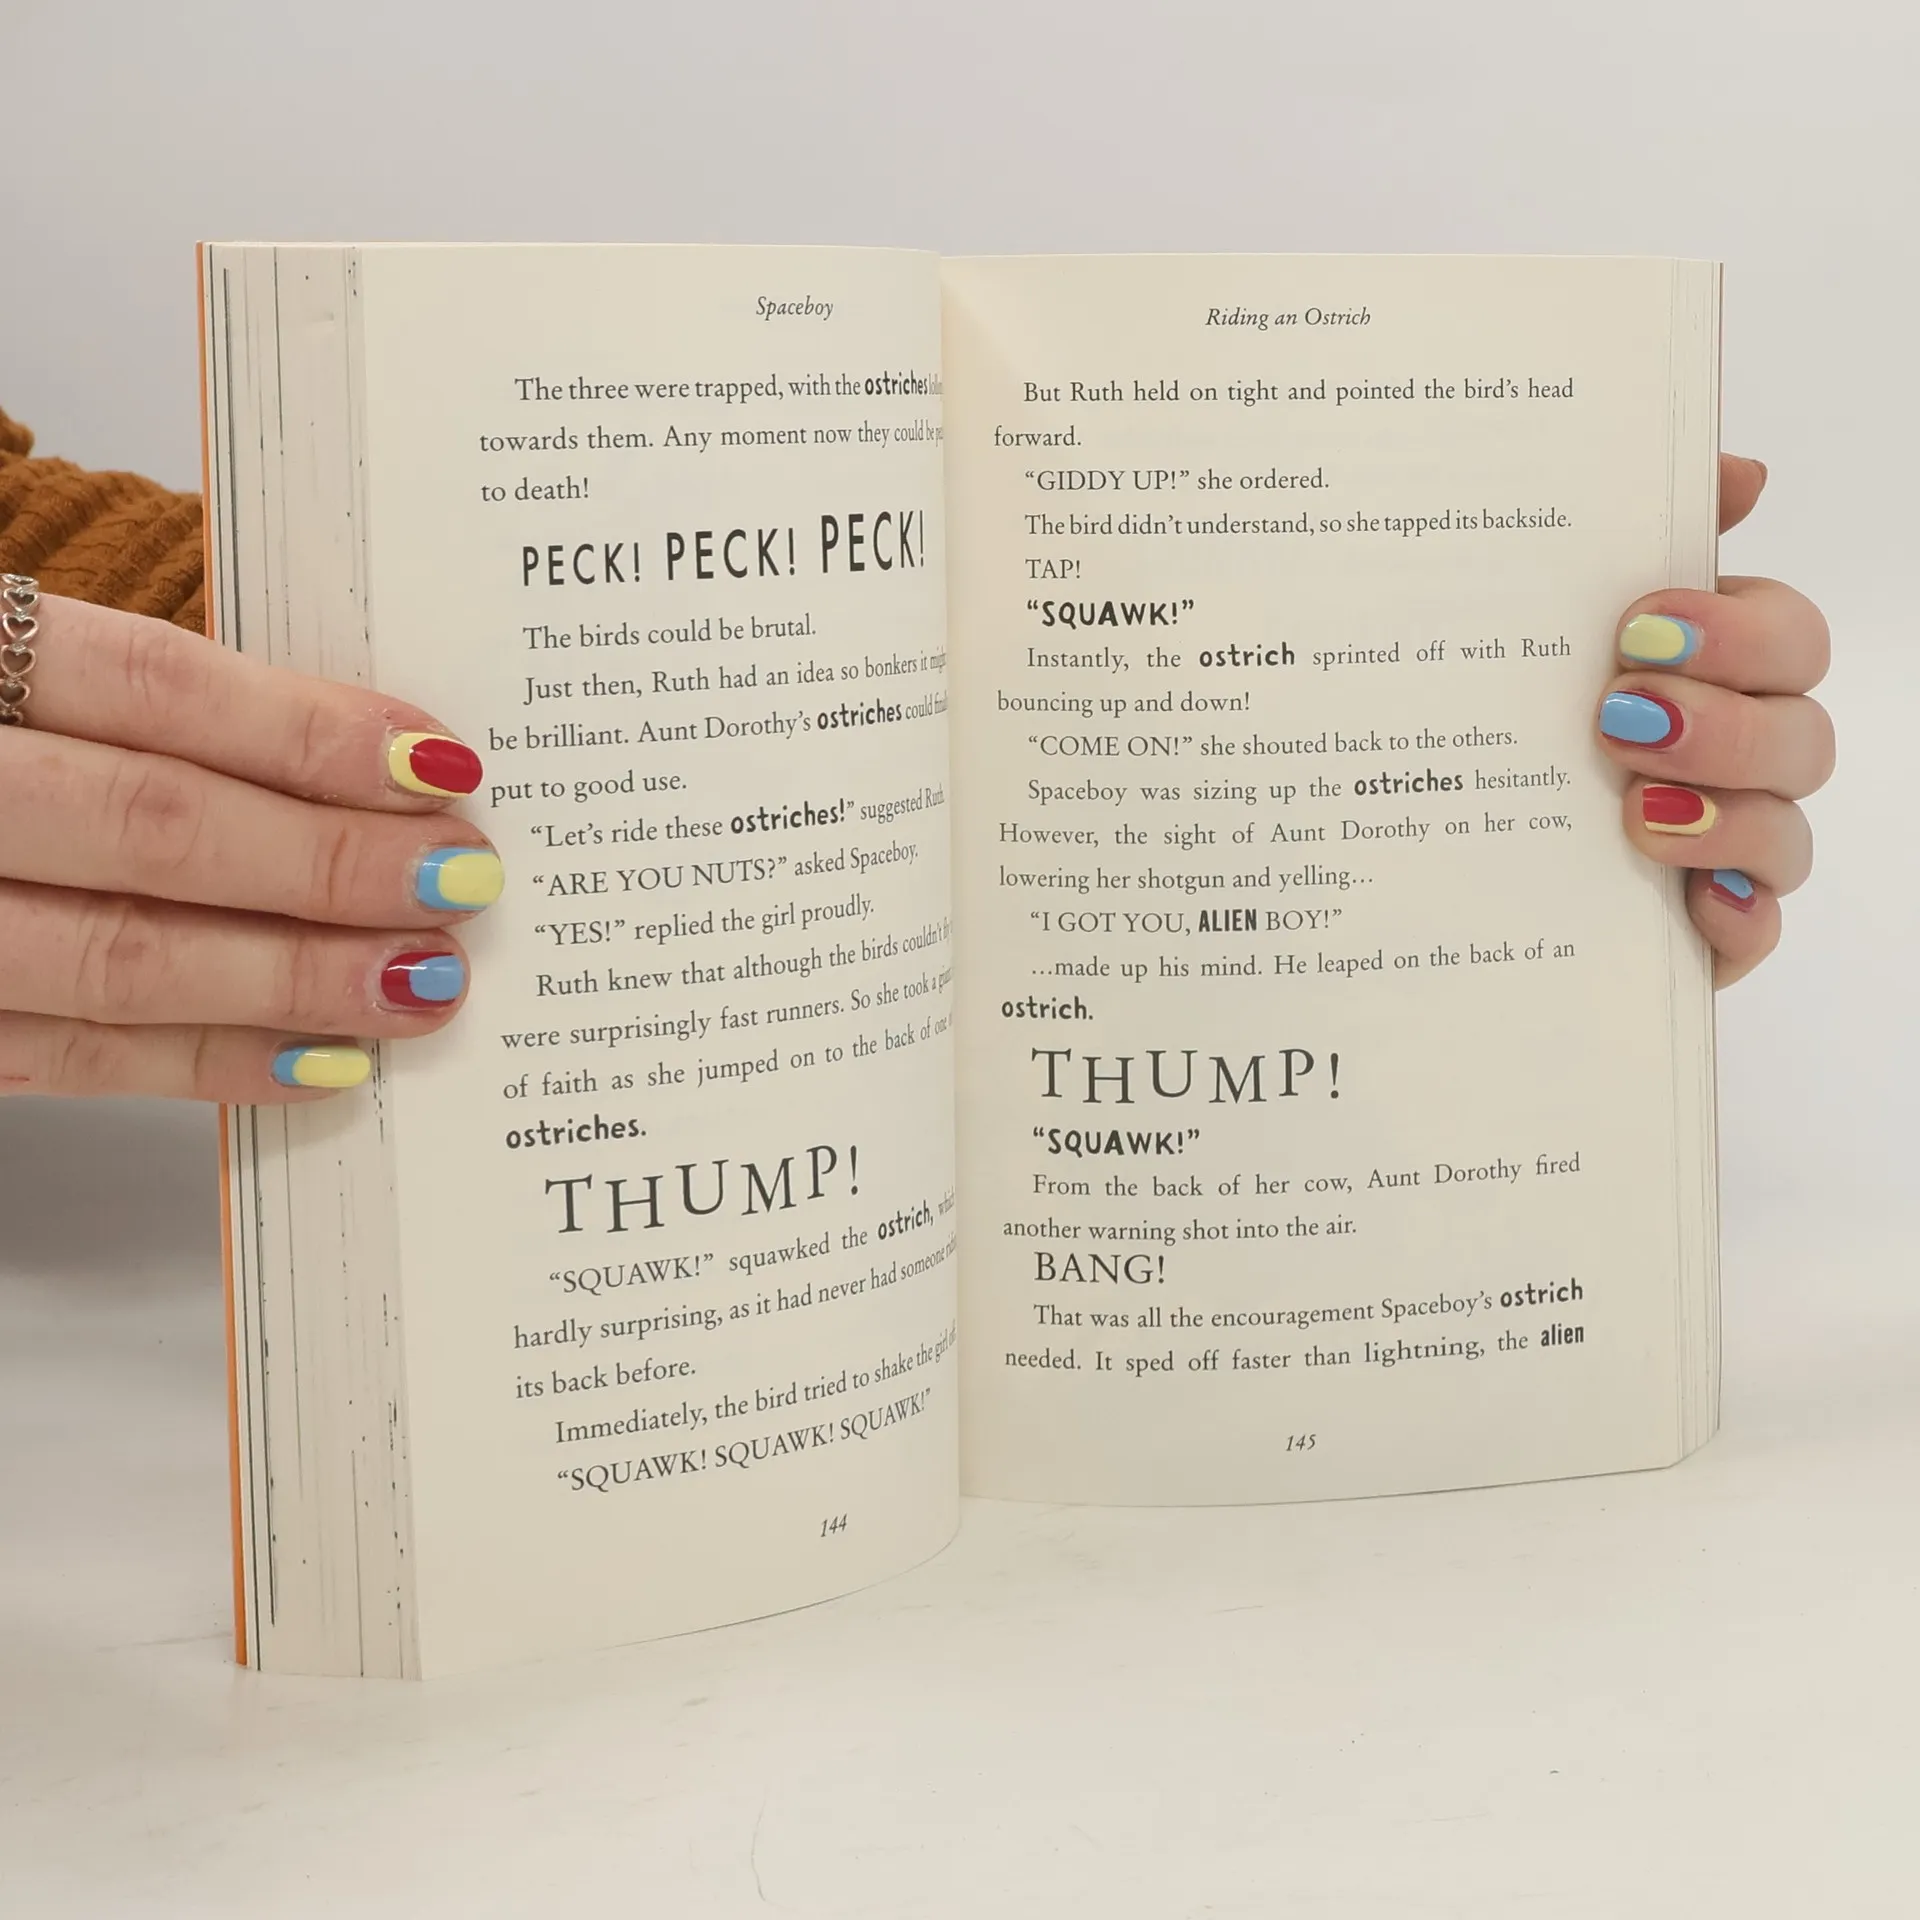 Spaceboy
The three were trapped, with the ostriches
towards them. Any moment now they could be
to death!
PECK! PECK! PECK!
The birds could be brutal.
Just then, Ruth had an idea so bonkers it might
be brilliant. Aunt Dorothy’s ostriches could
put to good use.
“Let’s ride these ostriches!” suggested Ruth.
“ARE YOU NUTS?” asked Spaceboy.
“YES!” replied the girl proudly.
Ruth knew that although the birds couldn’t
were surprisingly fast runners. So she took a
of faith as she jumped on to the back of one
ostriches.
THUMP!
“SQUAWK!” squawked the ostrich, which
hardly surprising, as it had never had someone
its back before.
Immediately, the bird tried to shake the girl
“SQUAWK! SQUAWK! SQUAWK!”
144
Riding an Ostrich
But Ruth held on tight and pointed the bird’s head
forward.
“GIDDY UP!” she ordered.
The bird didn’t understand, so she tapped its backside.
TAP!
“SQUAWK!”
Instantly, the ostrich sprinted off with Ruth
bouncing up and down!
“COME ON!” she shouted back to the others.
Spaceboy was sizing up the ostriches hesitantly.
However, the sight of Aunt Dorothy on her cow,
lowering her shotgun and yelling…
“I GOT YOU, ALIEN BOY!”
…made up his mind. He leaped on the back of an
ostrich.
THUMP!
“SQUAWK!”
From the back of her cow, Aunt Dorothy fired
another warning shot into the air.
BANG!
That was all the encouragement Spaceboy’s ostrich
needed. It sped off faster than lightning, the alien
145